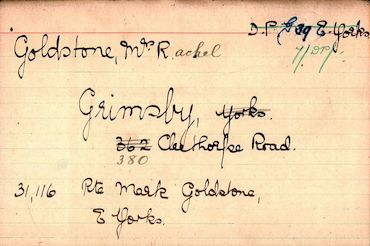 D.P. 39 E. Yorks
Y/DP/
Goldstone, Mrs Rachel
Grimsby, Yorks.
362 Cleethorpe Road.
380
31,116 Pte Mark Goldstone,
E Yorks.